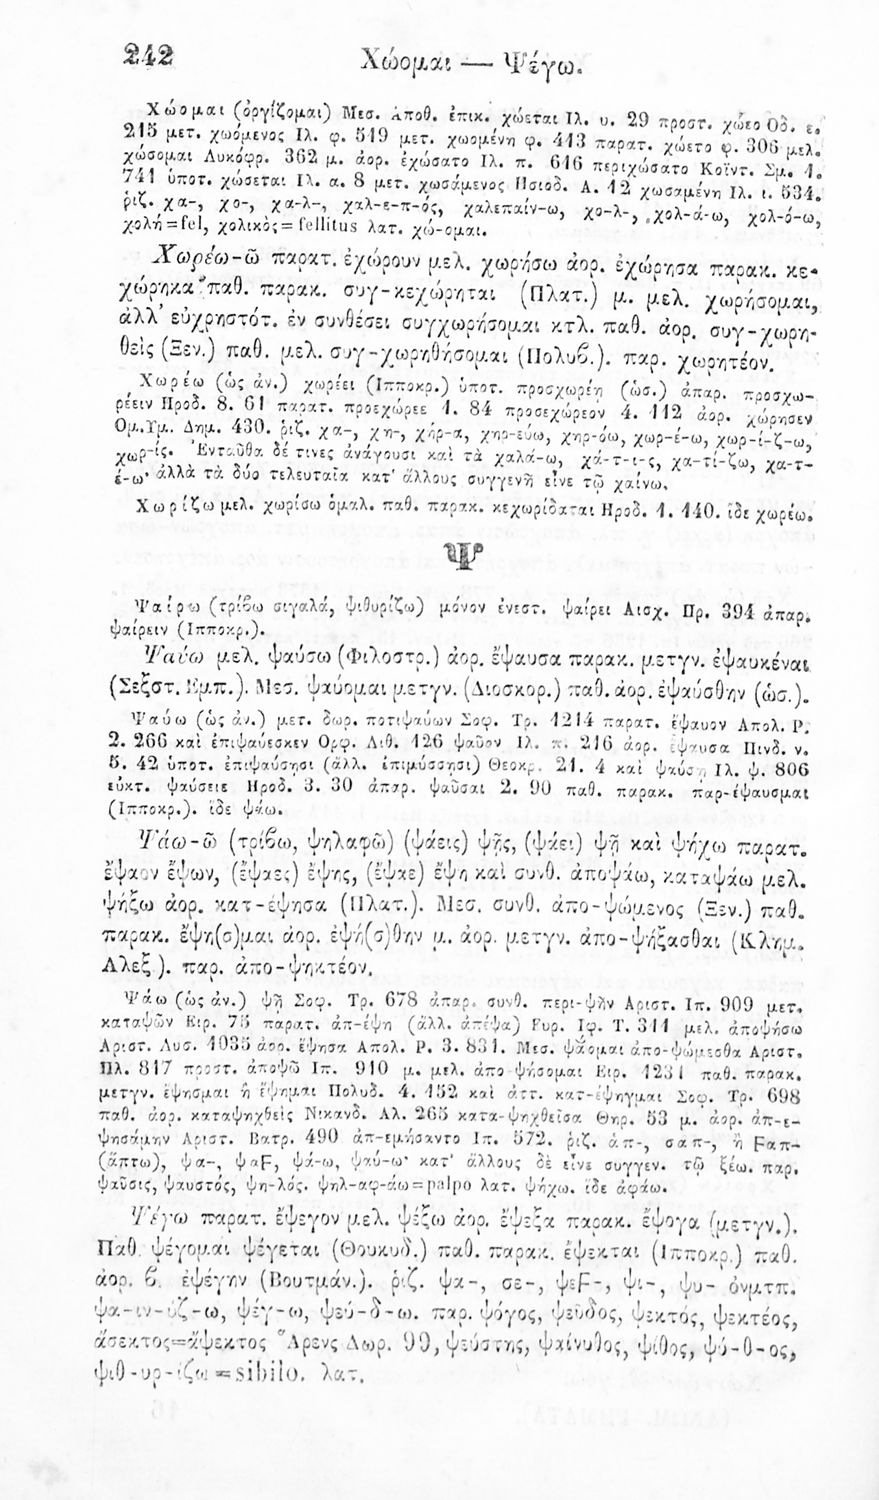 242
Χώομαι — Ψέγω.
Χώομαι (ὀργίζομαι) Μεσ. Ἀποθ. ἐπικ. χώεται Ιλ. υ. 29 προστ. χώεο Οδ. ε.
215 μετ. χωόμενος Ιλ. φ. 519 μετ. χωομένη φ. 413 παρατ. χώετο φ. 306 μελ.
χώσομαι Λυκόφρ. 362 μ. ἀορ. ἐχώσατο Ιλ. π. 616 περιχώσατο Κοϊντ. Σμ. 1.
741 ὑποτ. χώσεται Ιλ. α. 8 μετ. χωσάμενος Ησιοδ. Α. 12 χωσαμένη Ιλ. ι. 534.
ῥιζ. χα-, χο-, χα-λ-, χαλ-ε-π-ός, χαλεπαίν-ω, χο-λ-, χολ-ά-ω, χολ-ό-ω,
χολή=fel, χολικὸς=fellitus λατ. χώ-ομαι.
Χωρέω-ῶ παρατ. ἐχώρουν μελ. χωρήσω ἀορ. ἐχώρησα παρακ. κε-
χώρηκα παθ. παρακ. συγ-κεχώρηται (Πλατ.) μ. μελ. χωρήσομαι,
ἀλλ' εὐχρηστότ. ἐν συνθέσει συγχωρήσομαι κτλ. παθ. ἀορ. συγ-χωρη-
θεὶς (Ξεν.) παθ. μελ. συγ-χωρηθήσομαι (Πολυβ.). παρ. χωρητέον.
Χωρέω (ὡς ἀν.) χωρέει (Ιπποκρ.) ὑποτ. προσχωρέῃ (ὡσ.) ἀπαρ. προσχω-
ρέειν Ηροδ. 8. 61 παρατ. προεχώρεε 1. 84 προσεχώρεον 4. 112 ἀορ. χώρησεν
Ομ.Υμ. Δημ. 430. ῥιζ. χα-, χη-, χήρ-α, χηρ-εύω, χηρ-όω, χωρ-έ-ω, χωρ-ί-ζ-ω,
χωρ-ίς. Ἐνταῦθα δέ τινες ἀνάγουσι καὶ τὰ χαλά-ω, χά-τ-ι-ς, χα-τί-ζω, χα-τ-
έ-ω· ἀλλὰ τὰ δύο τελευταῖα κατ' ἄλλους συγγενῆ εἶνε τῷ χαίνω.
Χωρίζω μελ. χωρίσω ὁμαλ. παθ. παρακ. κεχωρίδαται Ηροδ. 1. 140. ἴδε χωρέω.
Ψ
Ψαίρω (τρίβω σιγαλά, ψιθυρίζω) μόνον ἐνεστ. ψαίρει Αισχ. Πρ. 394 ἀπαρ.
ψαίρειν (Ιπποκρ.).
Ψαύω μελ. ψαύσω (Φιλοστρ.) ἀορ. ἔψαυσα παρακ. μετγν. ἐψαυκέναι
(Σεξστ. Εμπ.). Μεσ. ψαύομαι μετγν. (Διοσκορ.) παθ. ἀορ. ἐψαύσθην (ὡσ.).
Ψαύω (ὡς ἀν.) μετ. δωρ. ποτιψαύων Σοφ. Τρ. 1214 παρατ. ἔψαυον Απολ. Ρ.
2. 266 καὶ ἐπιψαύεσκεν Ορφ. Λιθ. 126 ψαῦον Ιλ. π. 216 ἀορ. ἔψαυσα Πινδ. ν.
5. 42 ὑποτ. ἐπιψαύσησι (ἄλλ. ἐπιμύσσησι) Θεοκρ. 21. 4 καὶ ψαύσῃ Ιλ. ψ. 806
εὐκτ. ψαύσειε Ηροδ. 3. 30 ἀπαρ. ψαῦσαι 2. 90 παθ. παρακ. παρ-έψαυσμαι
(Ιπποκρ.). ἴδε ψάω.
Ψάω-ῶ (τρίβω, ψηλαφῶ) (ψάεις) ψῇς, (ψάει) ψῇ καὶ ψήχω παρατ.
ἔψαον ἔψων, (ἔψαες) ἔψης, (ἔψαε) ἔψη καὶ συνθ. ἀποψάω, καταψάω μελ.
ψήξω ἀορ. κατ-έψησα (Πλατ.). Μεσ. συνθ. ἀπο-ψώμενος (Ξεν.) παθ.
παρακ. ἔψη(σ)μαι ἀορ. ἐψή(σ)θην μ. ἀορ. μετγν. ἀπο-ψήξασθαι (Κλημ.
Αλεξ). παρ. ἀπο-ψηκτέον.
Ψάω (ὡς ἀν.) ψῇ Σοφ. Τρ. 678 ἀπαρ. συνθ. περι-ψῆν Αριστ. Ιπ. 909 μετ.
καταψῶν Ειρ. 75 παρατ. ἀπ-έψη (ἄλλ. ἀπέψα) Ευρ. Ιφ. Τ. 311 μελ. ἀποψήσω
Αριστ. Λυσ. 1035 ἀορ. ἔψησα Απολ. Ρ. 3. 831. Μεσ. ψάομαι ἀπο-ψώμεσθα Αριστ.
Πλ. 817 προστ. ἀποψῶ Ιπ. 910 μ. μελ. ἀπο-ψήσομαι Ειρ. 1231 παθ. παρακ.
μετγν. ἔψησμαι ἢ ἔψημαι Πολυδ. 4. 152 καὶ ἀττ. κατ-έψηγμαι Σοφ. Τρ. 698
παθ. ἀορ. καταψηχθεὶς Νικανδ. Αλ. 265 κατα-ψηχθεῖσα Θηρ. 53 μ. ἀορ. ἀπ-ε-
ψησάμην Αριστ. Βατρ. 490 ἀπ-εμήσαντο Ιπ. 572. ῥιζ. ἁπ-, σαπ-, ἢ Ϝαπ-
(ἅπτω), ψα-, ψαϜ, ψά-ω, ψαύ-ω· κατ' ἄλλους δὲ εἶνε συγγεν. τῷ ξέω. παρ.
ψαῦσις, ψαυστός, ψη-λός. ψηλ-αφ-άω=palpo λατ. ψήχω. ἴδε ἀφάω.
Ψέγω παρατ. ἔψεγον μελ. ψέξω ἀορ. ἔψεξα παρακ. ἔψογα (μετγν.).
Παθ. ψέγομαι ψέγεται (Θουκυδ.) παθ. παρακ. ἔψεκται (Ιπποκρ.) παθ.
ἀορ. β. ἐψέγην (Βουτμάν.). ῥιζ. ψα-, σε-, ψεϜ-, ψι-, ψυ- ὀνμτπ.
ψα-ιν-ύζ-ω, ψέγ-ω, ψεύ-δ-ω. παρ. ψόγος, ψεῦδος, ψεκτός, ψεκτέος,
ἄσεκτος=ἄψεκτος Ἄρενς Δωρ. 99, ψεύστης, ψαίνυθος, ψίθος, ψύ-θ-ος,
ψιθ-υρ-ίζω=sibilo. λατ.